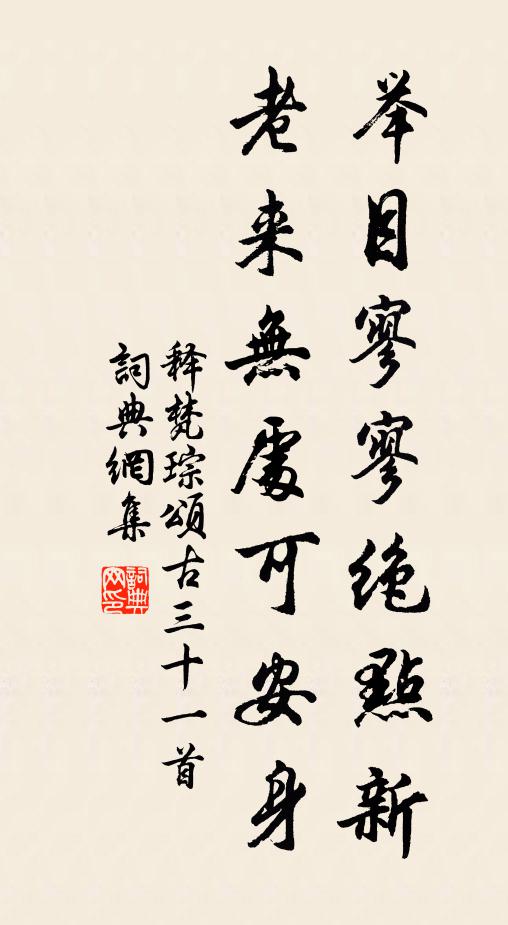 举目寥寥绝點新
老来無處可安身
释梵琮頌古三十一首
詞典網集
詞典網印